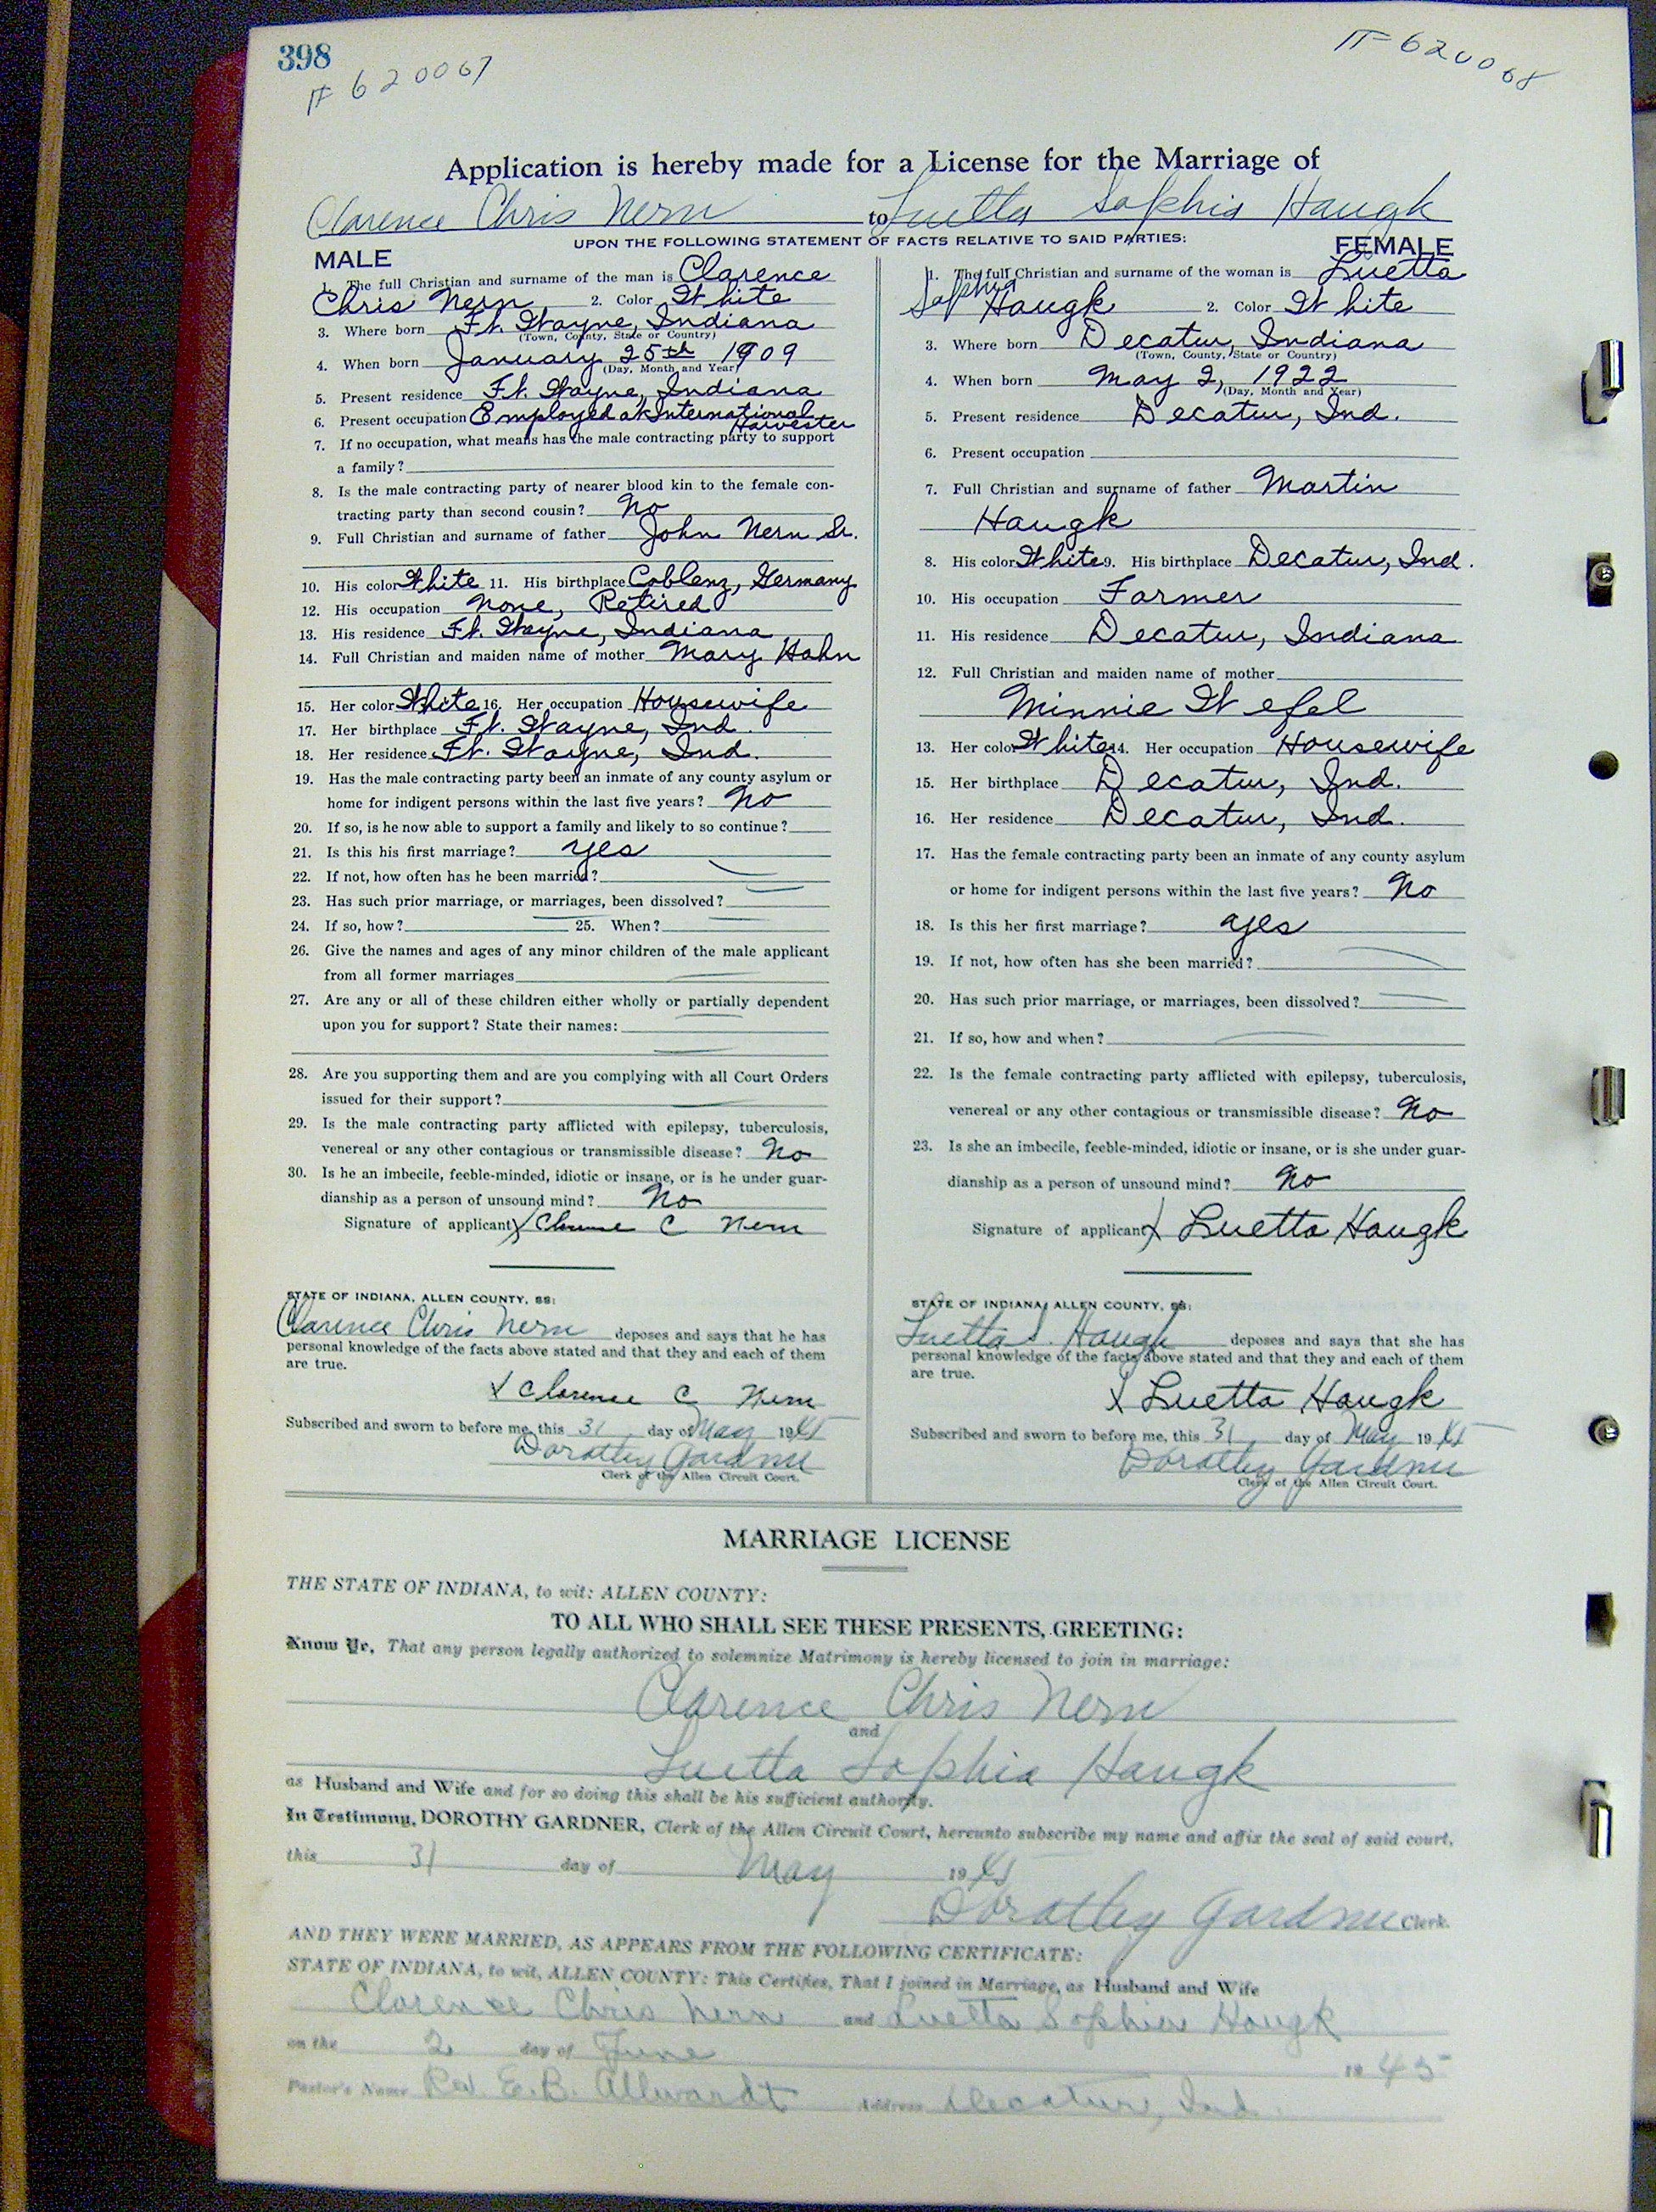 398
# 620067
# 620068
Application is hereby made for a License for the Marriage of
Clarence Chris Nern to Luetta Sophia Haugk
UPON THE FOLLOWING STATEMENT OF FACTS RELATIVE TO SAID PARTIES:
MALE
1. The full Christian and surname of the man is Clarence
Chris Nern 2. Color White
3. Where born Ft. Wayne, Indiana
(Town, County, State or Country)
4. When born January 25th 1909
(Day, Month and Year)
5. Present residence Ft. Wayne, Indiana
6. Present occupation Employed at International
Harvester
7. If no occupation, what means has the male contracting party to support
a family?
8. Is the male contracting party of nearer blood kin to the female con-
tracting party than second cousin? No
9. Full Christian and surname of father John Nern Sr.
10. His color White 11. His birthplace Coblenz, Germany
12. His occupation None, Retired
13. His residence Ft. Wayne, Indiana
14. Full Christian and maiden name of mother Mary Hahn
15. Her color White 16. Her occupation Housewife
17. Her birthplace Ft. Wayne, Ind.
18. Her residence Ft. Wayne, Ind.
19. Has the male contracting party been an inmate of any county asylum or
home for indigent persons within the last five years? No
20. If so, is he now able to support a family and likely to so continue?
21. Is this his first marriage? yes
22. If not, how often has he been married?
23. Has such prior marriage, or marriages, been dissolved?
24. If so, how? 25. When?
26. Give the names and ages of any minor children of the male applicant
from all former marriages
27. Are any or all of these children either wholly or partially dependent
upon you for support? State their names:
28. Are you supporting them and are you complying with all Court Orders
issued for their support?
29. Is the male contracting party afflicted with epilepsy, tuberculosis,
venereal or any other contagious or transmissible disease? No
30. Is he an imbecile, feeble-minded, idiotic or insane, or is he under guar-
dianship as a person of unsound mind? No
Signature of applicant X Clarence C Nern
STATE OF INDIANA, ALLEN COUNTY, SS:
Clarence Chris Nern deposes and says that he has
personal knowledge of the facts above stated and that they and each of them
are true.
X Clarence C Nern
Subscribed and sworn to before me, this 31 day of May 1945
Dorothy Gardner
Clerk of the Allen Circuit Court.
FEMALE
1. The full Christian and surname of the woman is Luetta
Sophia Haugk 2. Color White
3. Where born Decatur, Indiana
(Town, County, State or Country)
4. When born May 2, 1922
(Day, Month and Year)
5. Present residence Decatur, Ind.
6. Present occupation
7. Full Christian and surname of father Martin
Haugk
8. His color White 9. His birthplace Decatur, Ind.
10. His occupation Farmer
11. His residence Decatur, Indiana
12. Full Christian and maiden name of mother
Minnie Wefel
13. Her color White 14. Her occupation Housewife
15. Her birthplace Decatur, Ind.
16. Her residence Decatur, Ind.
17. Has the female contracting party been an inmate of any county asylum
or home for indigent persons within the last five years? No
18. Is this her first marriage? yes
19. If not, how often has she been married?
20. Has such prior marriage, or marriages, been dissolved?
21. If so, how and when?
22. Is the female contracting party afflicted with epilepsy, tuberculosis,
venereal or any other contagious or transmissible disease? No
23. Is she an imbecile, feeble-minded, idiotic or insane, or is she under guar-
dianship as a person of unsound mind? No
Signature of applicant X Luetta Haugk
STATE OF INDIANA, ALLEN COUNTY, SS:
Luetta S. Haugk deposes and says that she has
personal knowledge of the facts above stated and that they and each of them
are true.
X Luetta Haugk
Subscribed and sworn to before me, this 31 day of May 1945
Dorothy Gardner
Clerk of the Allen Circuit Court.
MARRIAGE LICENSE
THE STATE OF INDIANA, to wit: ALLEN COUNTY:
TO ALL WHO SHALL SEE THESE PRESENTS, GREETING:
Know Ye, That any person legally authorized to solemnize Matrimony is hereby licensed to join in marriage:
Clarence Chris Nern
and
Luetta Sophia Haugk
as Husband and Wife and for so doing this shall be his sufficient authority.
In Testimony, DOROTHY GARDNER, Clerk of the Allen Circuit Court, hereunto subscribe my name and affix the seal of said court,
this 31 day of May 1945
Dorothy Gardner Clerk.
AND THEY WERE MARRIED, AS APPEARS FROM THE FOLLOWING CERTIFICATE:
STATE OF INDIANA, to wit, ALLEN COUNTY: This Certifies, That I joined in Marriage, as Husband and Wife
Clarence Chris Nern and Luetta Sophia Haugk
on the 2 day of June 1945
Pastor's Name Rev. E. B. Allwardt Address Decatur, Ind.